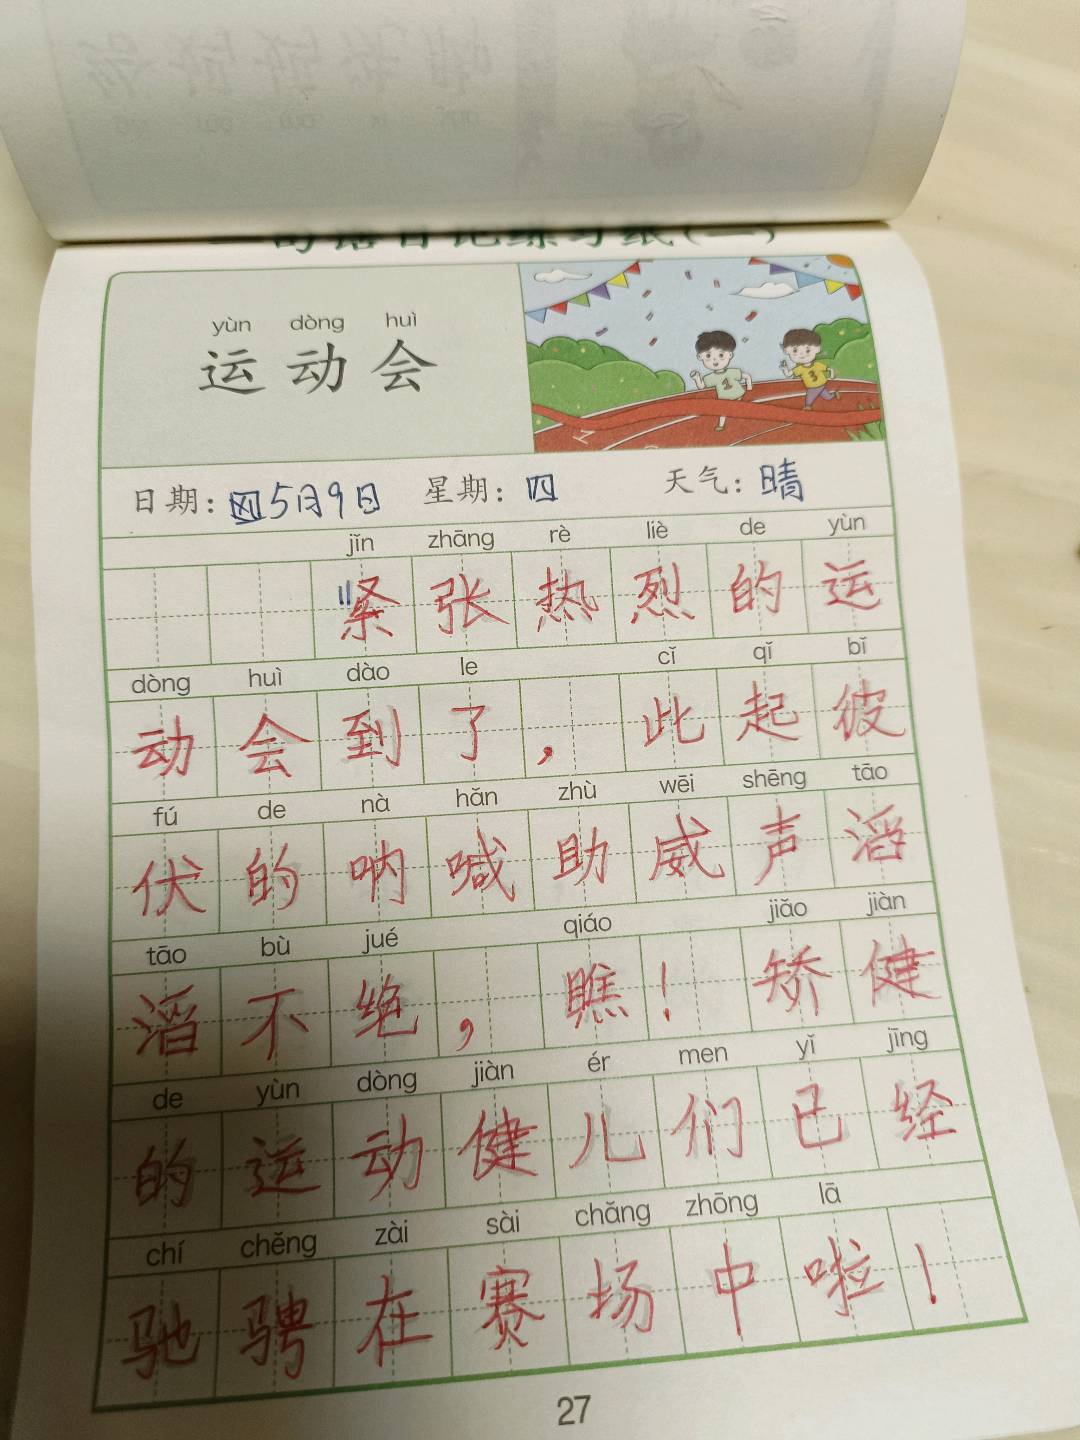 一句话日记练习纸(一)
yùn dòng huì
运动会
日期：5月9日 星期：四 天气：晴
jǐn zhāng rè liè de yùn
紧张热烈的运
dòng huì dào le cǐ qǐ bǐ
动会到了，此起彼
fú de nà hǎn zhù wēi shēng tāo
伏的呐喊助威声滔
tāo bù jué qiáo jiǎo jiàn
滔不绝，瞧！矫健
de yùn dòng jiàn ér men yǐ jīng
的运动健儿们已经
chí chěng zài sài chǎng zhōng lā
驰骋在赛场中啦！
1
3
27